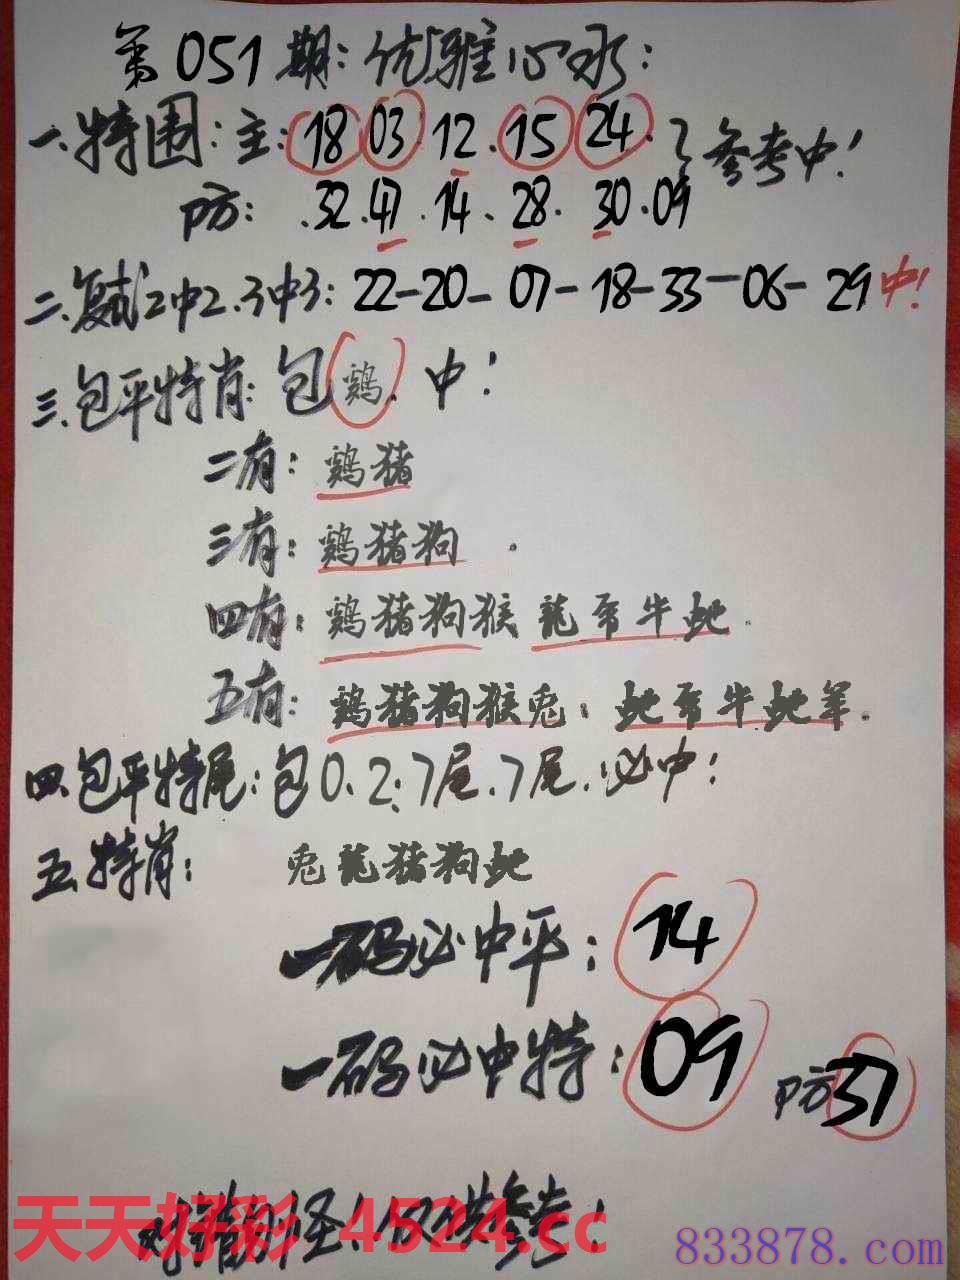 第051期:优雅心水:
一.特围:主:18 03.12.15 24.
参考中!
防: .32.47.14.28.30.09
二.复试2中2.3中3:22-20-07-18-33-06-29中!
三.包平特肖:包鸡.中!
二有:鸡猪
三有:鸡猪狗.
四有:鸡猪狗猴 龍 牛虵.
五有:鸡猪狗猴兔:虵 牛虵羊.
四.包平特尾:包0.2:7尾.7尾.必中!
五.特肖: 兔龍猪狗虵
一码必中平:14
一码必中特:09 防37
对错别怪!仅供参考!
天天好彩 4524.cc
833878.com